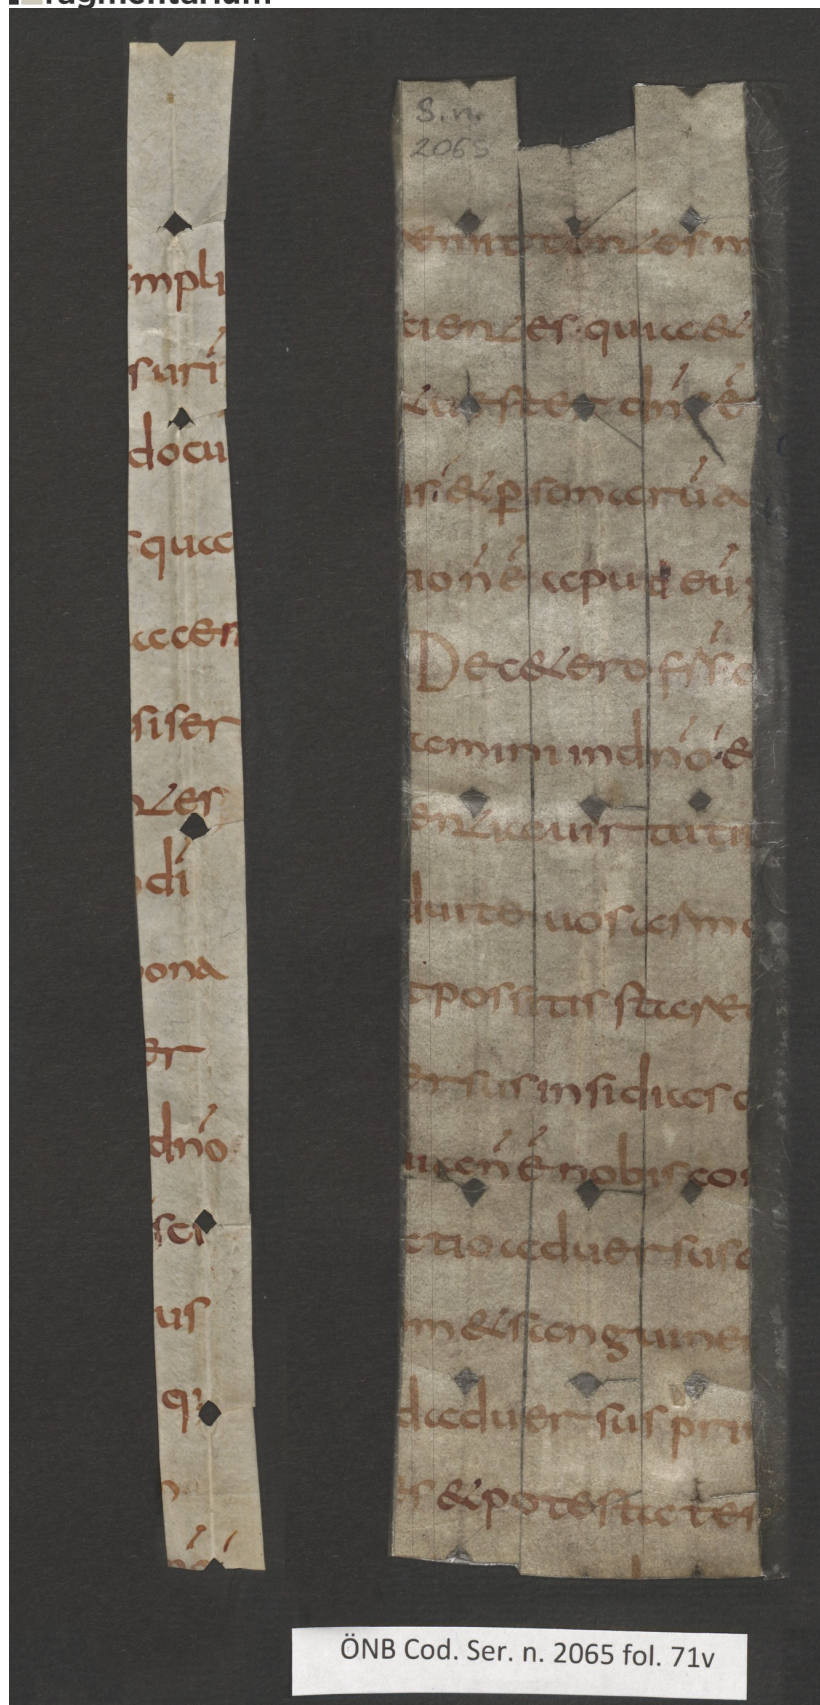 fragmentarium
mpli
suri
docu
squae
accen
siser
ntes
di
bona
er
dn̄o
sci
us
q;
S. n.
2065
emittentes m
tientes quia et
uester dn̄s ē
is & p̱sonarū ac
tion̄ ē apud eū;
De cetero frs̄ c
temini in dn̄o &
entia uirtuti
duite uos arma
t possitis stare
ersus insidias d
uian̄ ē nobis con
ctatio aduersus c
m & sanguine
d aduersus prin
s & potestates
ÖNB Cod. Ser. n. 2065 fol. 71v